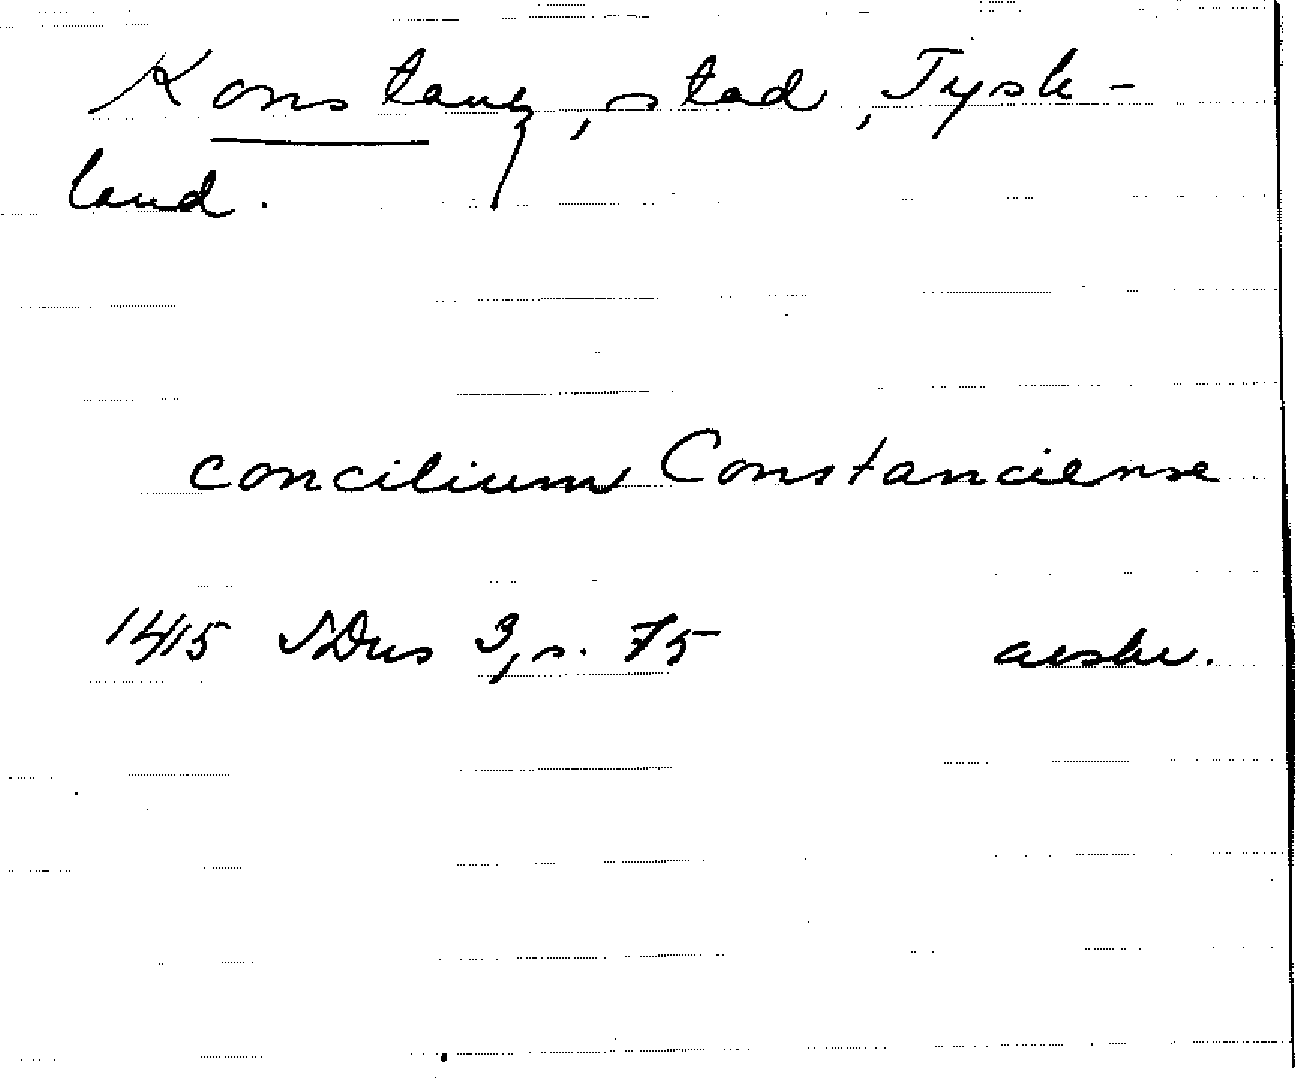 Konstanz, stad, Tysk-
land.
concilium Constanciense
1415 SDns 3, s. 75 avskr.